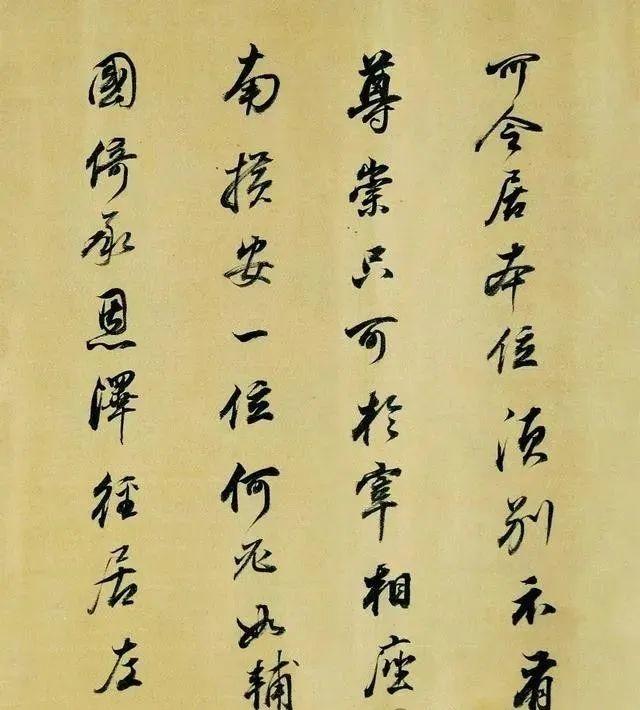 可令居本位須別示有
尊崇只可於宰相座
南橫安一位何如輔
國倚承恩澤徑居左